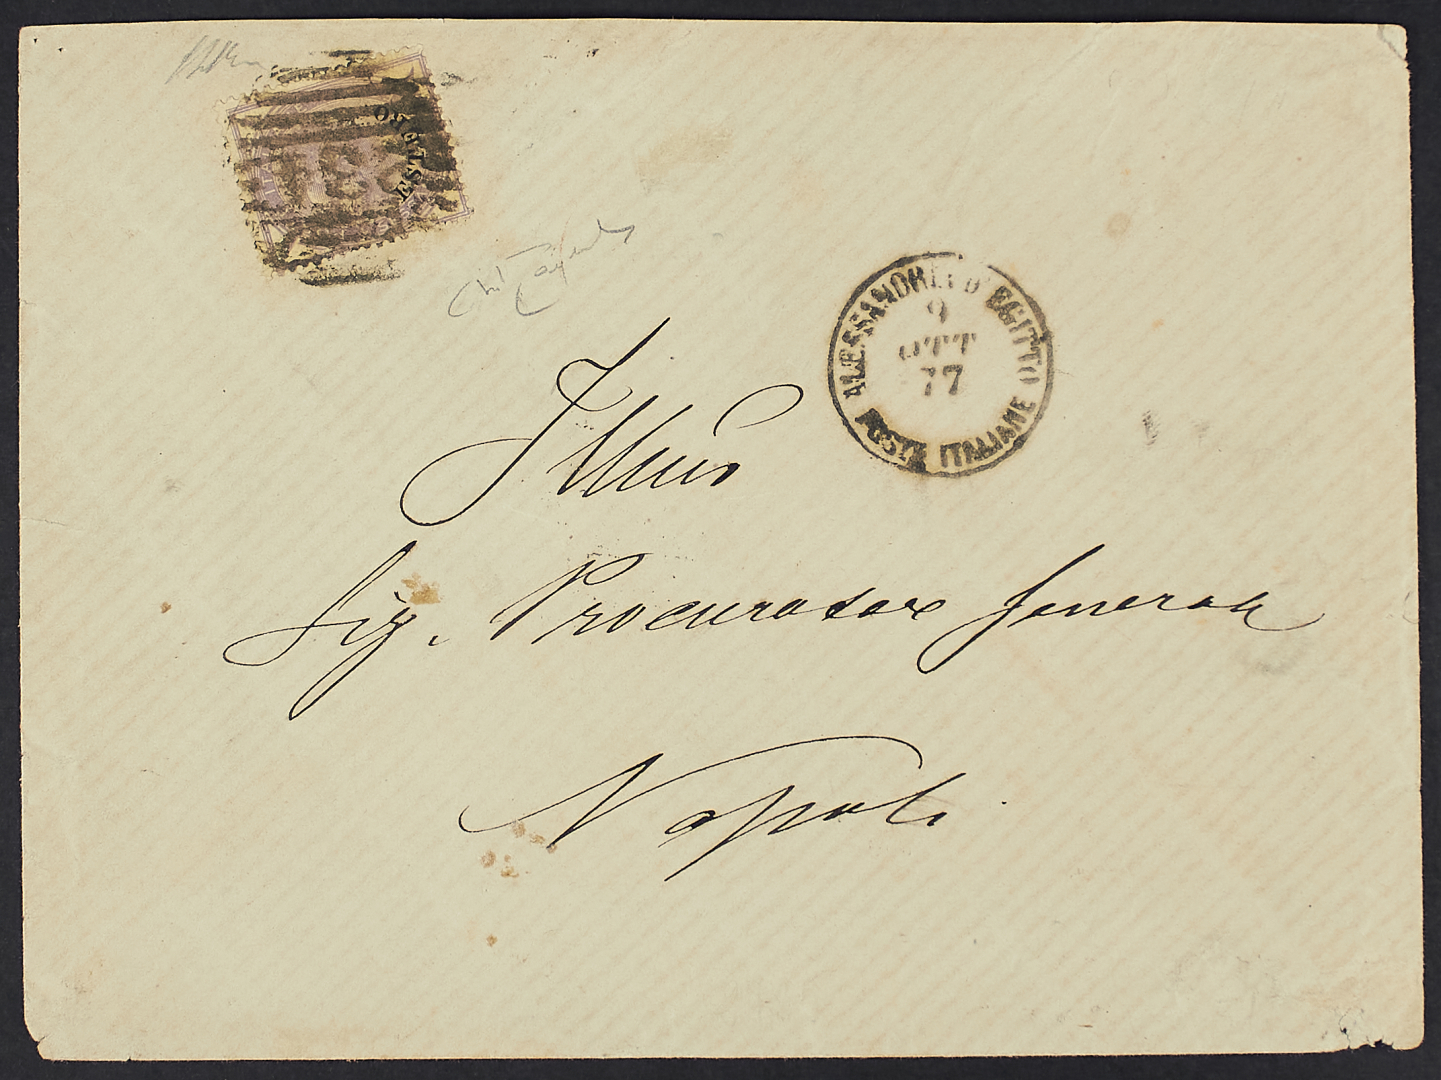 ESTERO
234
ALESSANDRIA D'EGITTO
9
OTT
77
POSTE ITALIANE
Illmo
Sig. Procuratore Generale
Napoli